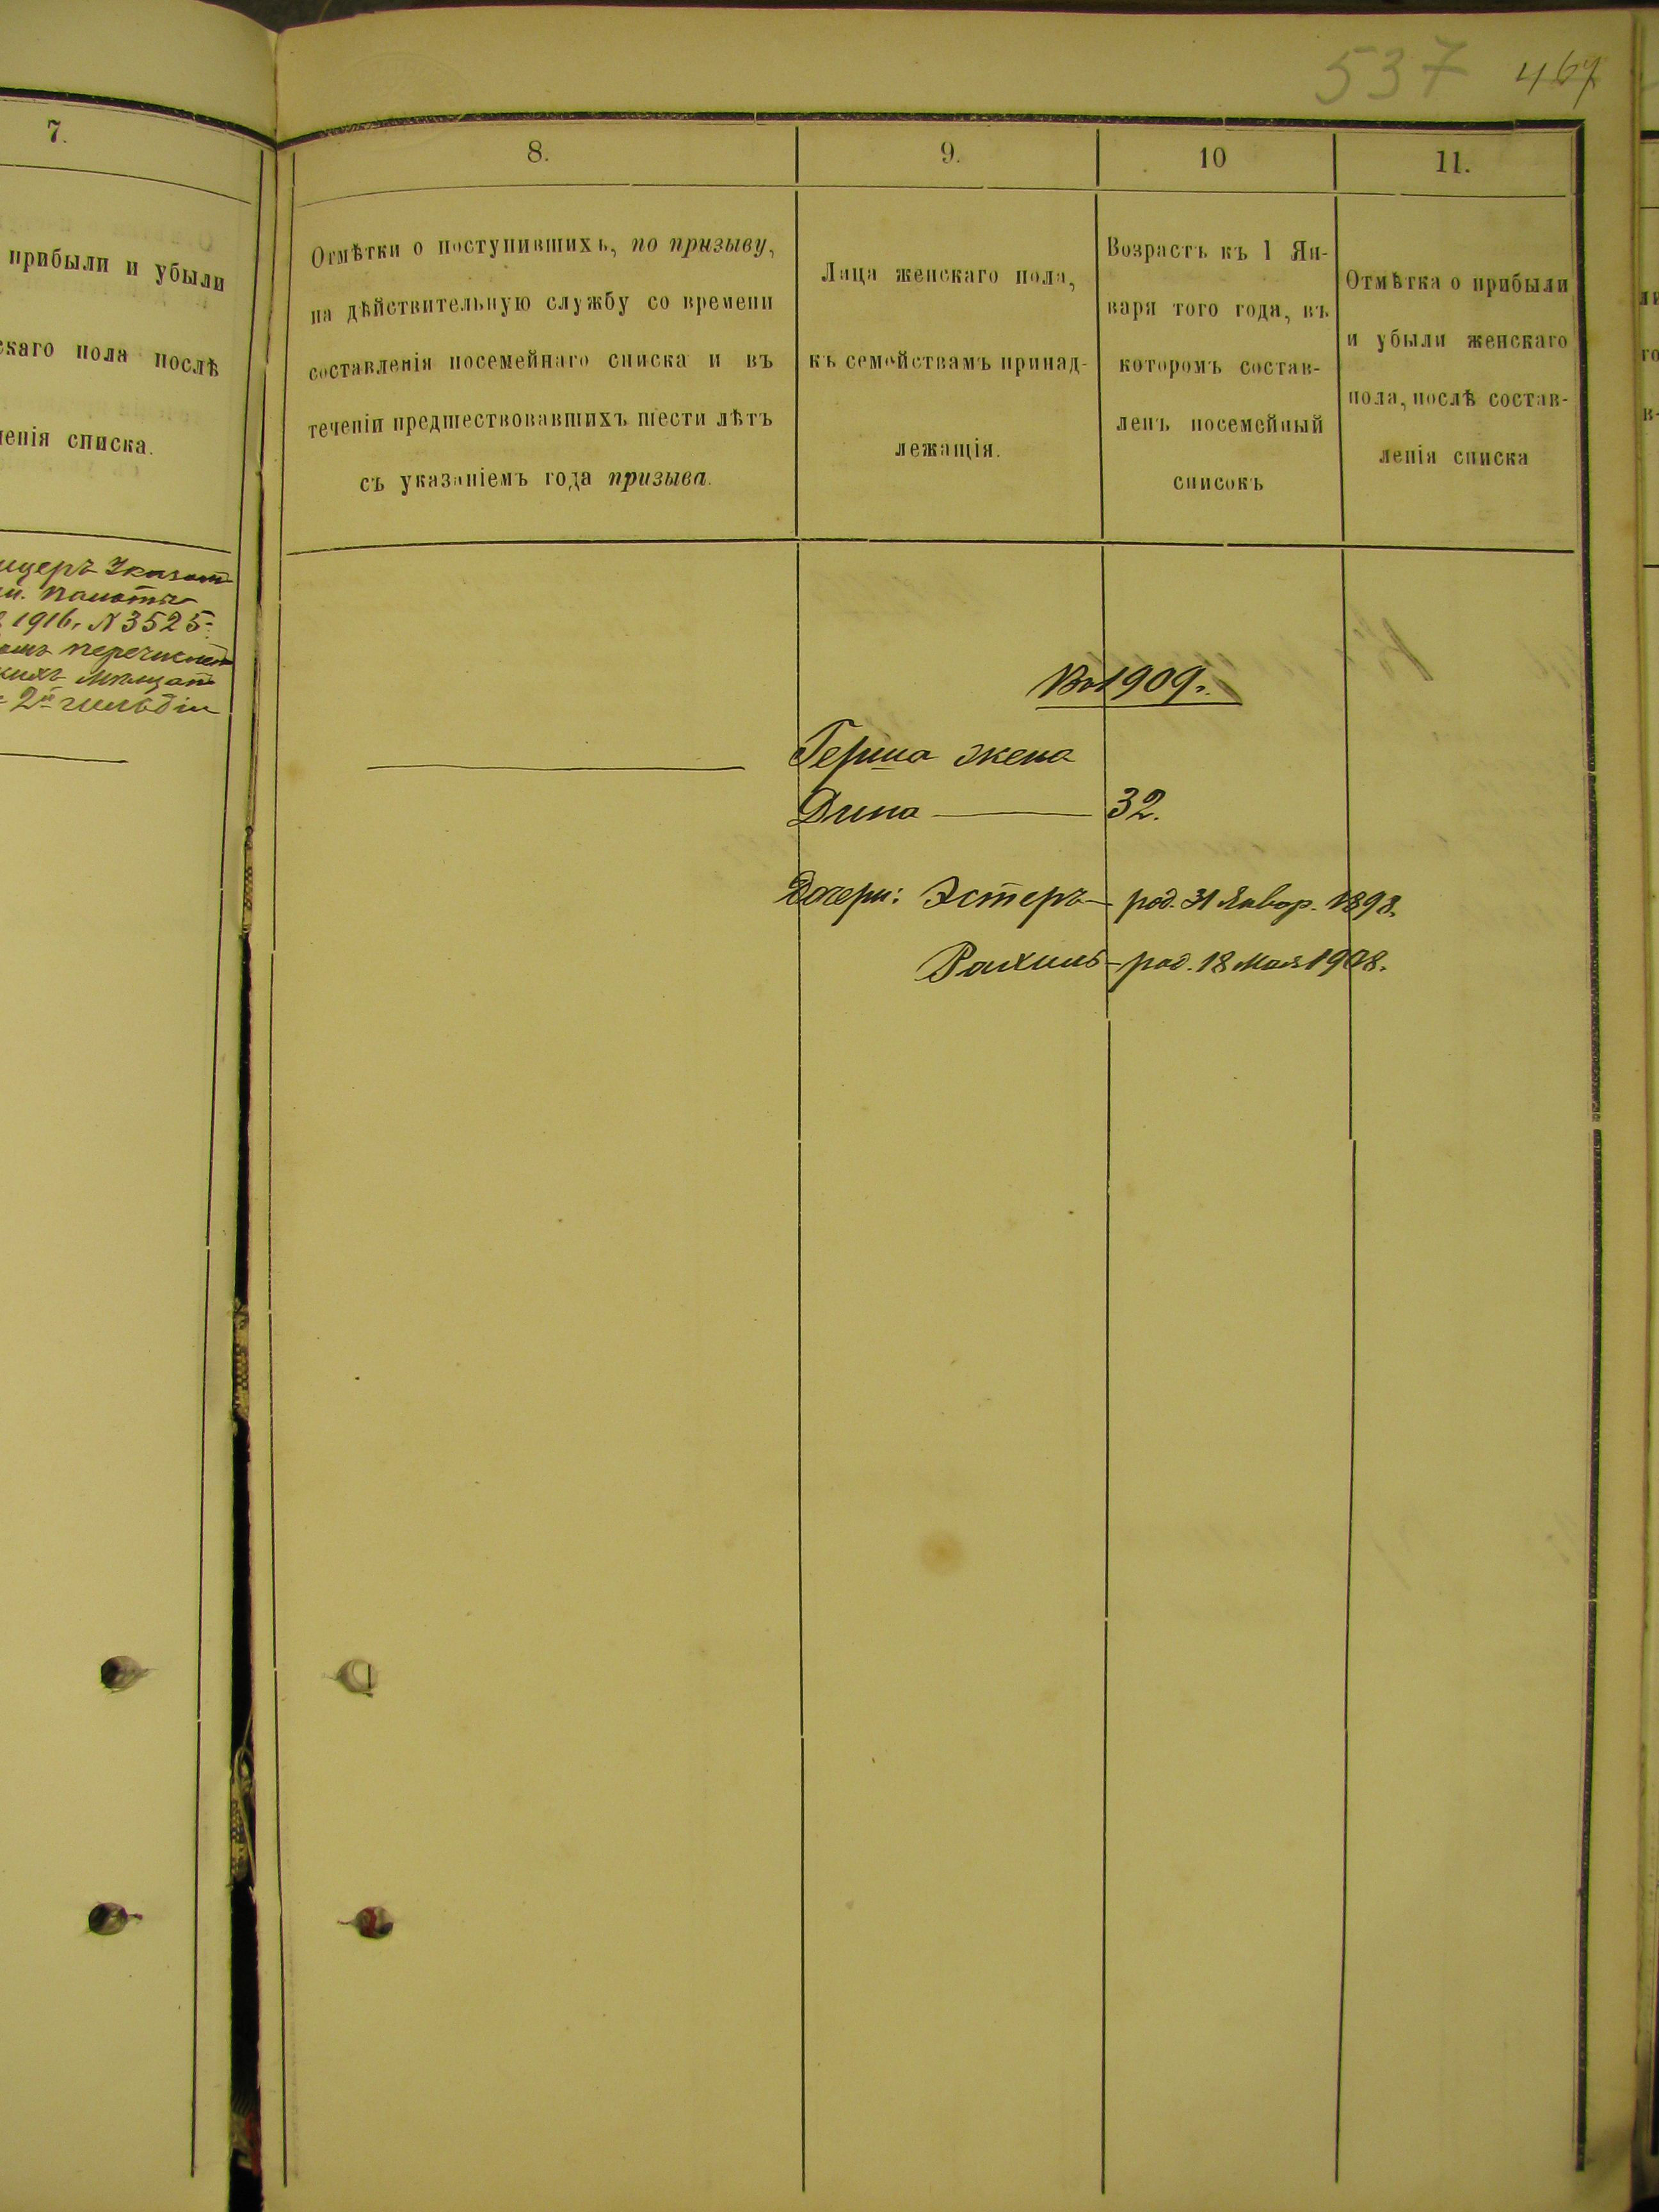 537 467
7.
прибыли и убыли
скаго пола послѣ
ленія списка.
1916г. N 3525
2й гильдіи
8.
Отмѣтки о поступившихъ, по призыву,
на дѣйствительную службу со времени
составленія посемейнаго списка и въ
теченіи предшествовавшихъ шести лѣтъ
съ указаніемъ года призыва.
9.
Лица женскаго пола,
къ семействамъ принад-
лежащія.
10
Возрастъ къ 1 Ян-
варя того года, въ
которомъ состав-
ленъ посемейный
списокъ
11.
Отмѣтка о прибыли
и убыли женскаго
пола, послѣ состав-
ленія списка
Въ 1909г.
Герша жена
Дина — 32.
Дочери: Эстеръ — род. 31 Январ. 1898.
Рахиль — род. 18 мая 1908.